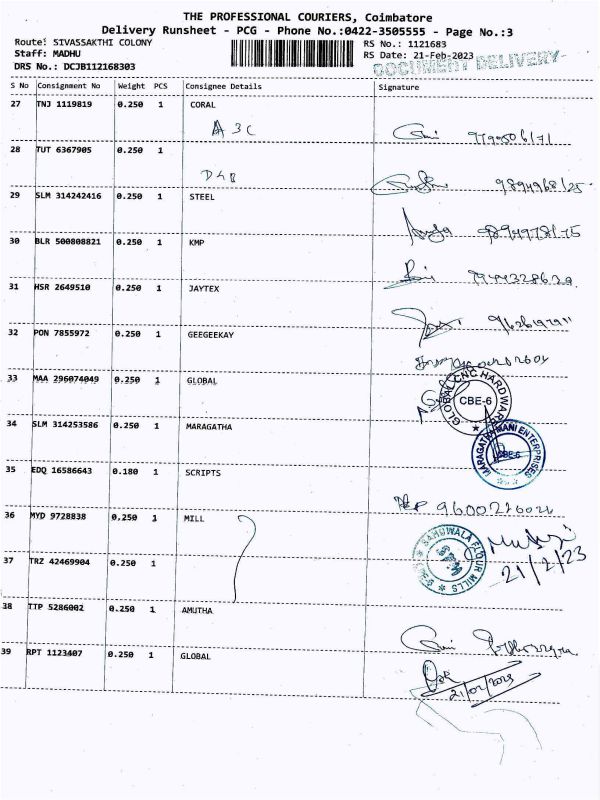 THE PROFESSIONAL COURIERS, Coimbatore
Delivery Runsheet - PCG - Phone No.:0422-3505555 - Page No.:3
Route: SIVASSAKTHI COLONY
Staff: MADHU
DRS No.: DCJB112168303
RS No.: 1121683
RS Date: 21-Feb-2023
DOCUMENT DELIVERY
S No Consignment No Weight PCS Consignee Details Signature
27 TNJ 1119819 0.250 1 CORAL
A3C
28 TUT 6367905 0.250 1
D48
29 SLM 314242416 0.250 1 STEEL
30 BLR 500808821 0.250 1 KMP
31 HSR 2649510 0.250 1 JAYTEX
32 PON 7855972 0.250 1 GEEGEEKAY
33 MAA 296074049 0.250 1 GLOBAL
GLOBAL CNC HARDWARE
CBE-6
34 SLM 314253586 0.250 1 MARAGATHA
MARAGATHAMANI ENTERPRISES
CBE-6
35 EDQ 16586643 0.180 1 SCRIPTS
36 MYD 9728838 0.250 1 MILL
FLOUR MILLS
21/2/23
37 TRZ 42469904 0.250 1
38 TTP 5286002 0.250 1 AMUTHA
39 RPT 1123407 0.250 1 GLOBAL
21/02/2023